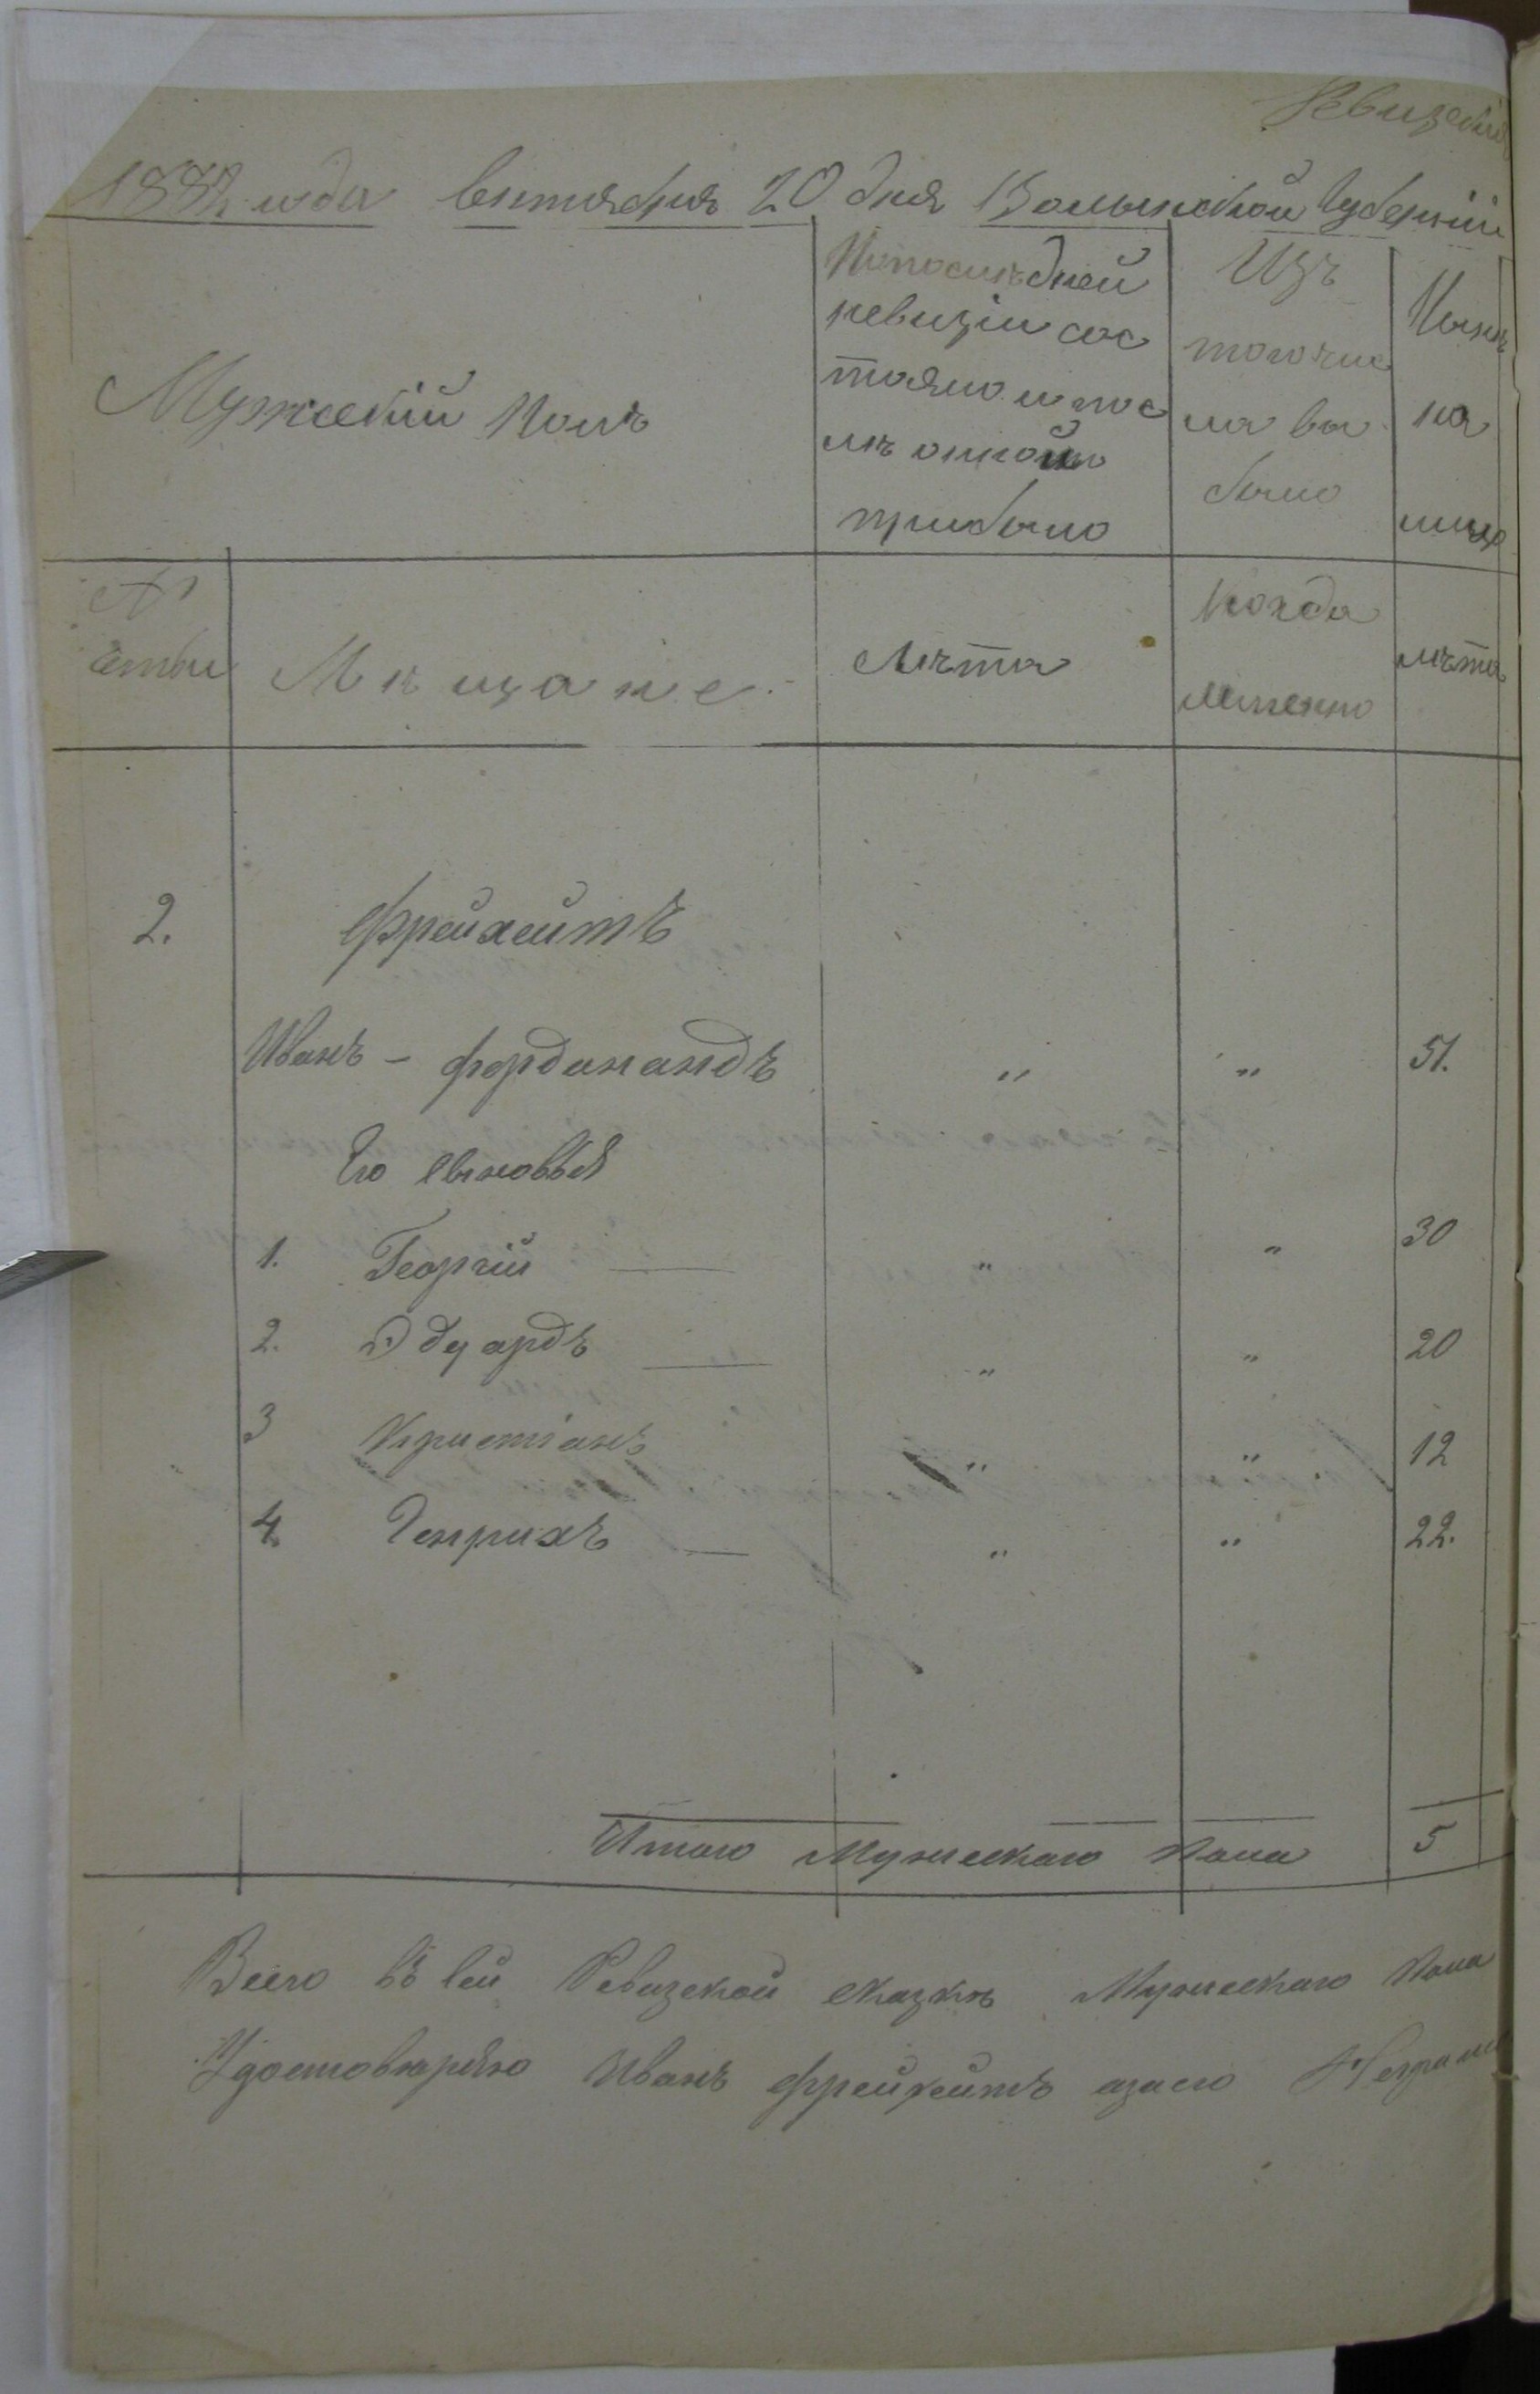 Ревизская
1882 года Сентября 20 дня Волынской Губерніи
Мужескій Полъ
По последней ревизіи состояло и после оной прибыло
Изъ того числа выбыло
Ныне на лицо
№ Семьи
Мещане
Лета
Когда именно
лета
2. Фрейхейтъ
Иванъ - Фердинандъ " " 51.
Его Сыновья
1. Георгій " " 30
2. Эдуардъ " " 20
3 Христіанъ " " 12
4. Генрихъ " " 22.
Итого Мужескаго Пола 5
Всего въ сей Ревизской сказке Мужескаго Пола
Удостоверяю Иванъ Фрейхейтъ а за его Неграмот